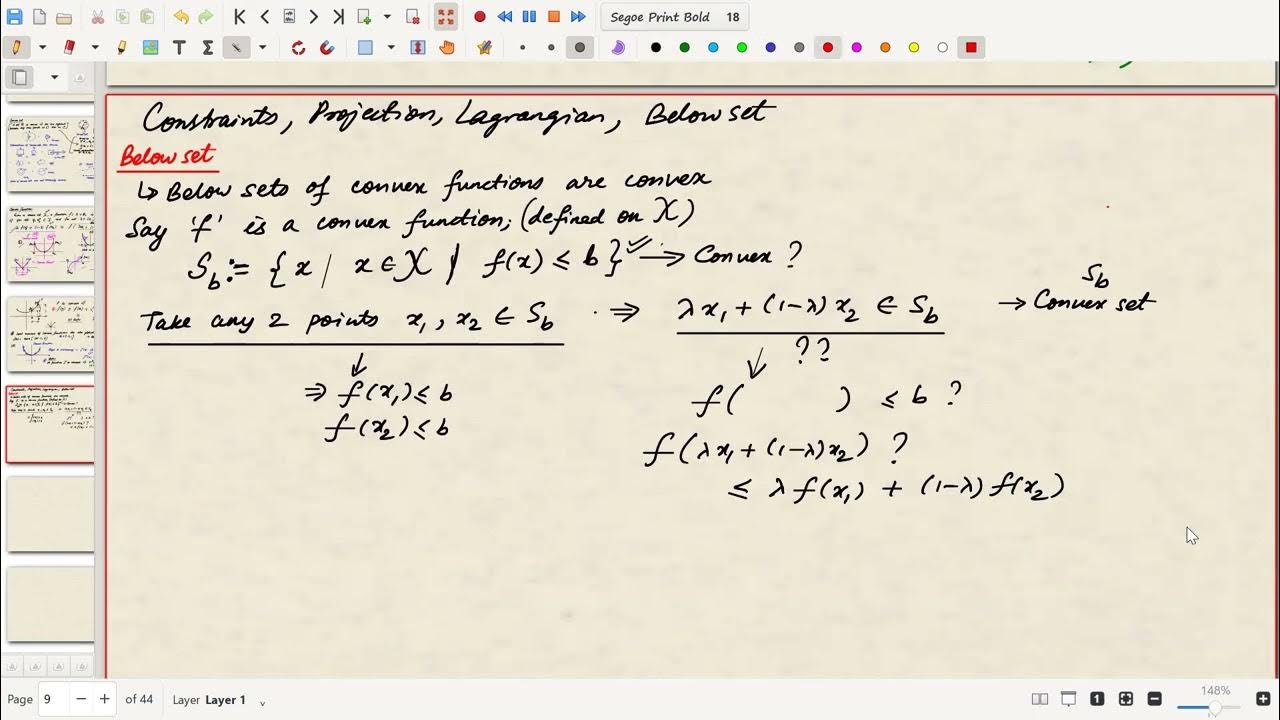 Segoe Print Bold 18
Constraints, Projection, Lagrangian, Below set
Below set
↳ Below sets of convex functions are convex
Say 'f' is a convex function; (defined on X)
S_b := { x | x ∈ X | f(x) ≤ b } ✓ → Convex ?
S_b
Take any 2 points x₁, x₂ ∈ S_b ⇒ λx₁ + (1-λ)x₂ ∈ S_b → Convex set
↓ ↓ ??
⇒ f(x₁) ≤ b f( ) ≤ b ?
f(x₂) ≤ b
f(λx₁ + (1-λ)x₂) ?
≤ λ f(x₁) + (1-λ) f(x₂)
Page 9 of 44 Layer Layer 1
148%